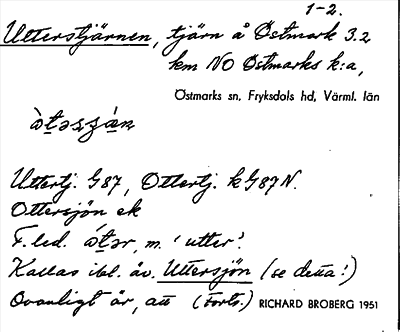 1-2.
Utterstjärnen, tjärn å Östmark 3.2
km NO Östmarks k:a,
Östmarks sn, Fryksdals hd, Värml. län
Uttertj. G87, Ottertj. kG87N.
Ottersjön ek
F.led. m. 'utter'.
Kallas ibl. äv. Uttersjön (se detta!)
Ovanligt är, att (forts.) RICHARD BROBERG 1951